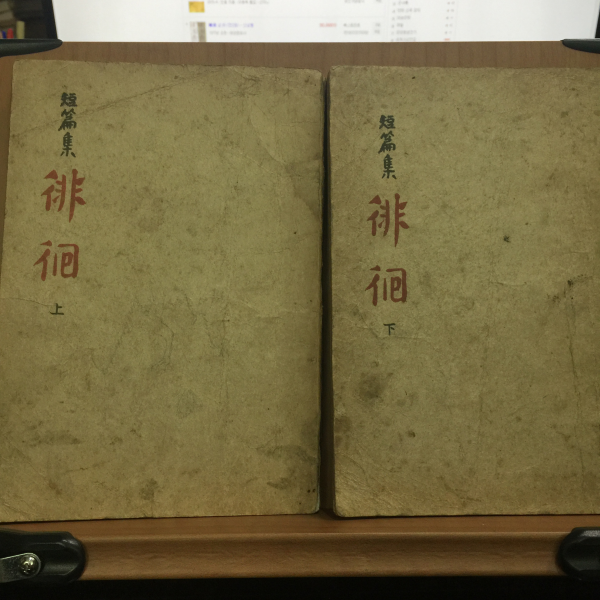 短篇集
徘徊
上
短篇集
徘徊
下